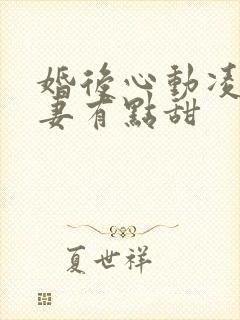 婚後心動凌
妻有點甜
夏世祥